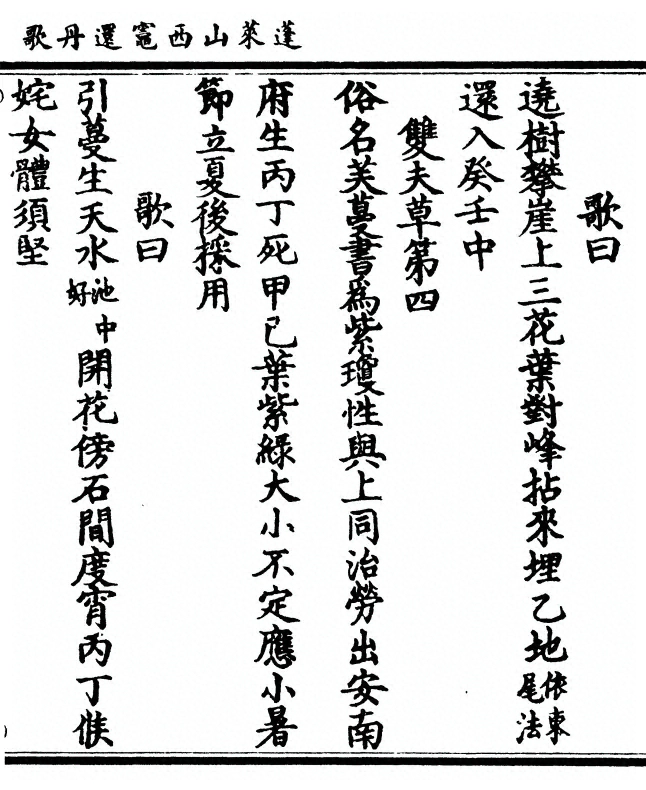 蓬萊山西竈還丹歌
歌曰
遶樹攀崖上三花葉對峰拈來埋乙地依東尾法
還入癸壬中
雙夫草第四
俗名芙蔓書為紫瓊性與上同治勞出安南
府生丙丁死甲己葉紫綠大小不定應小暑
節立夏後採用
歌曰
引蔓生天水池中好開花傍石間度宵丙丁候
姹女體須堅